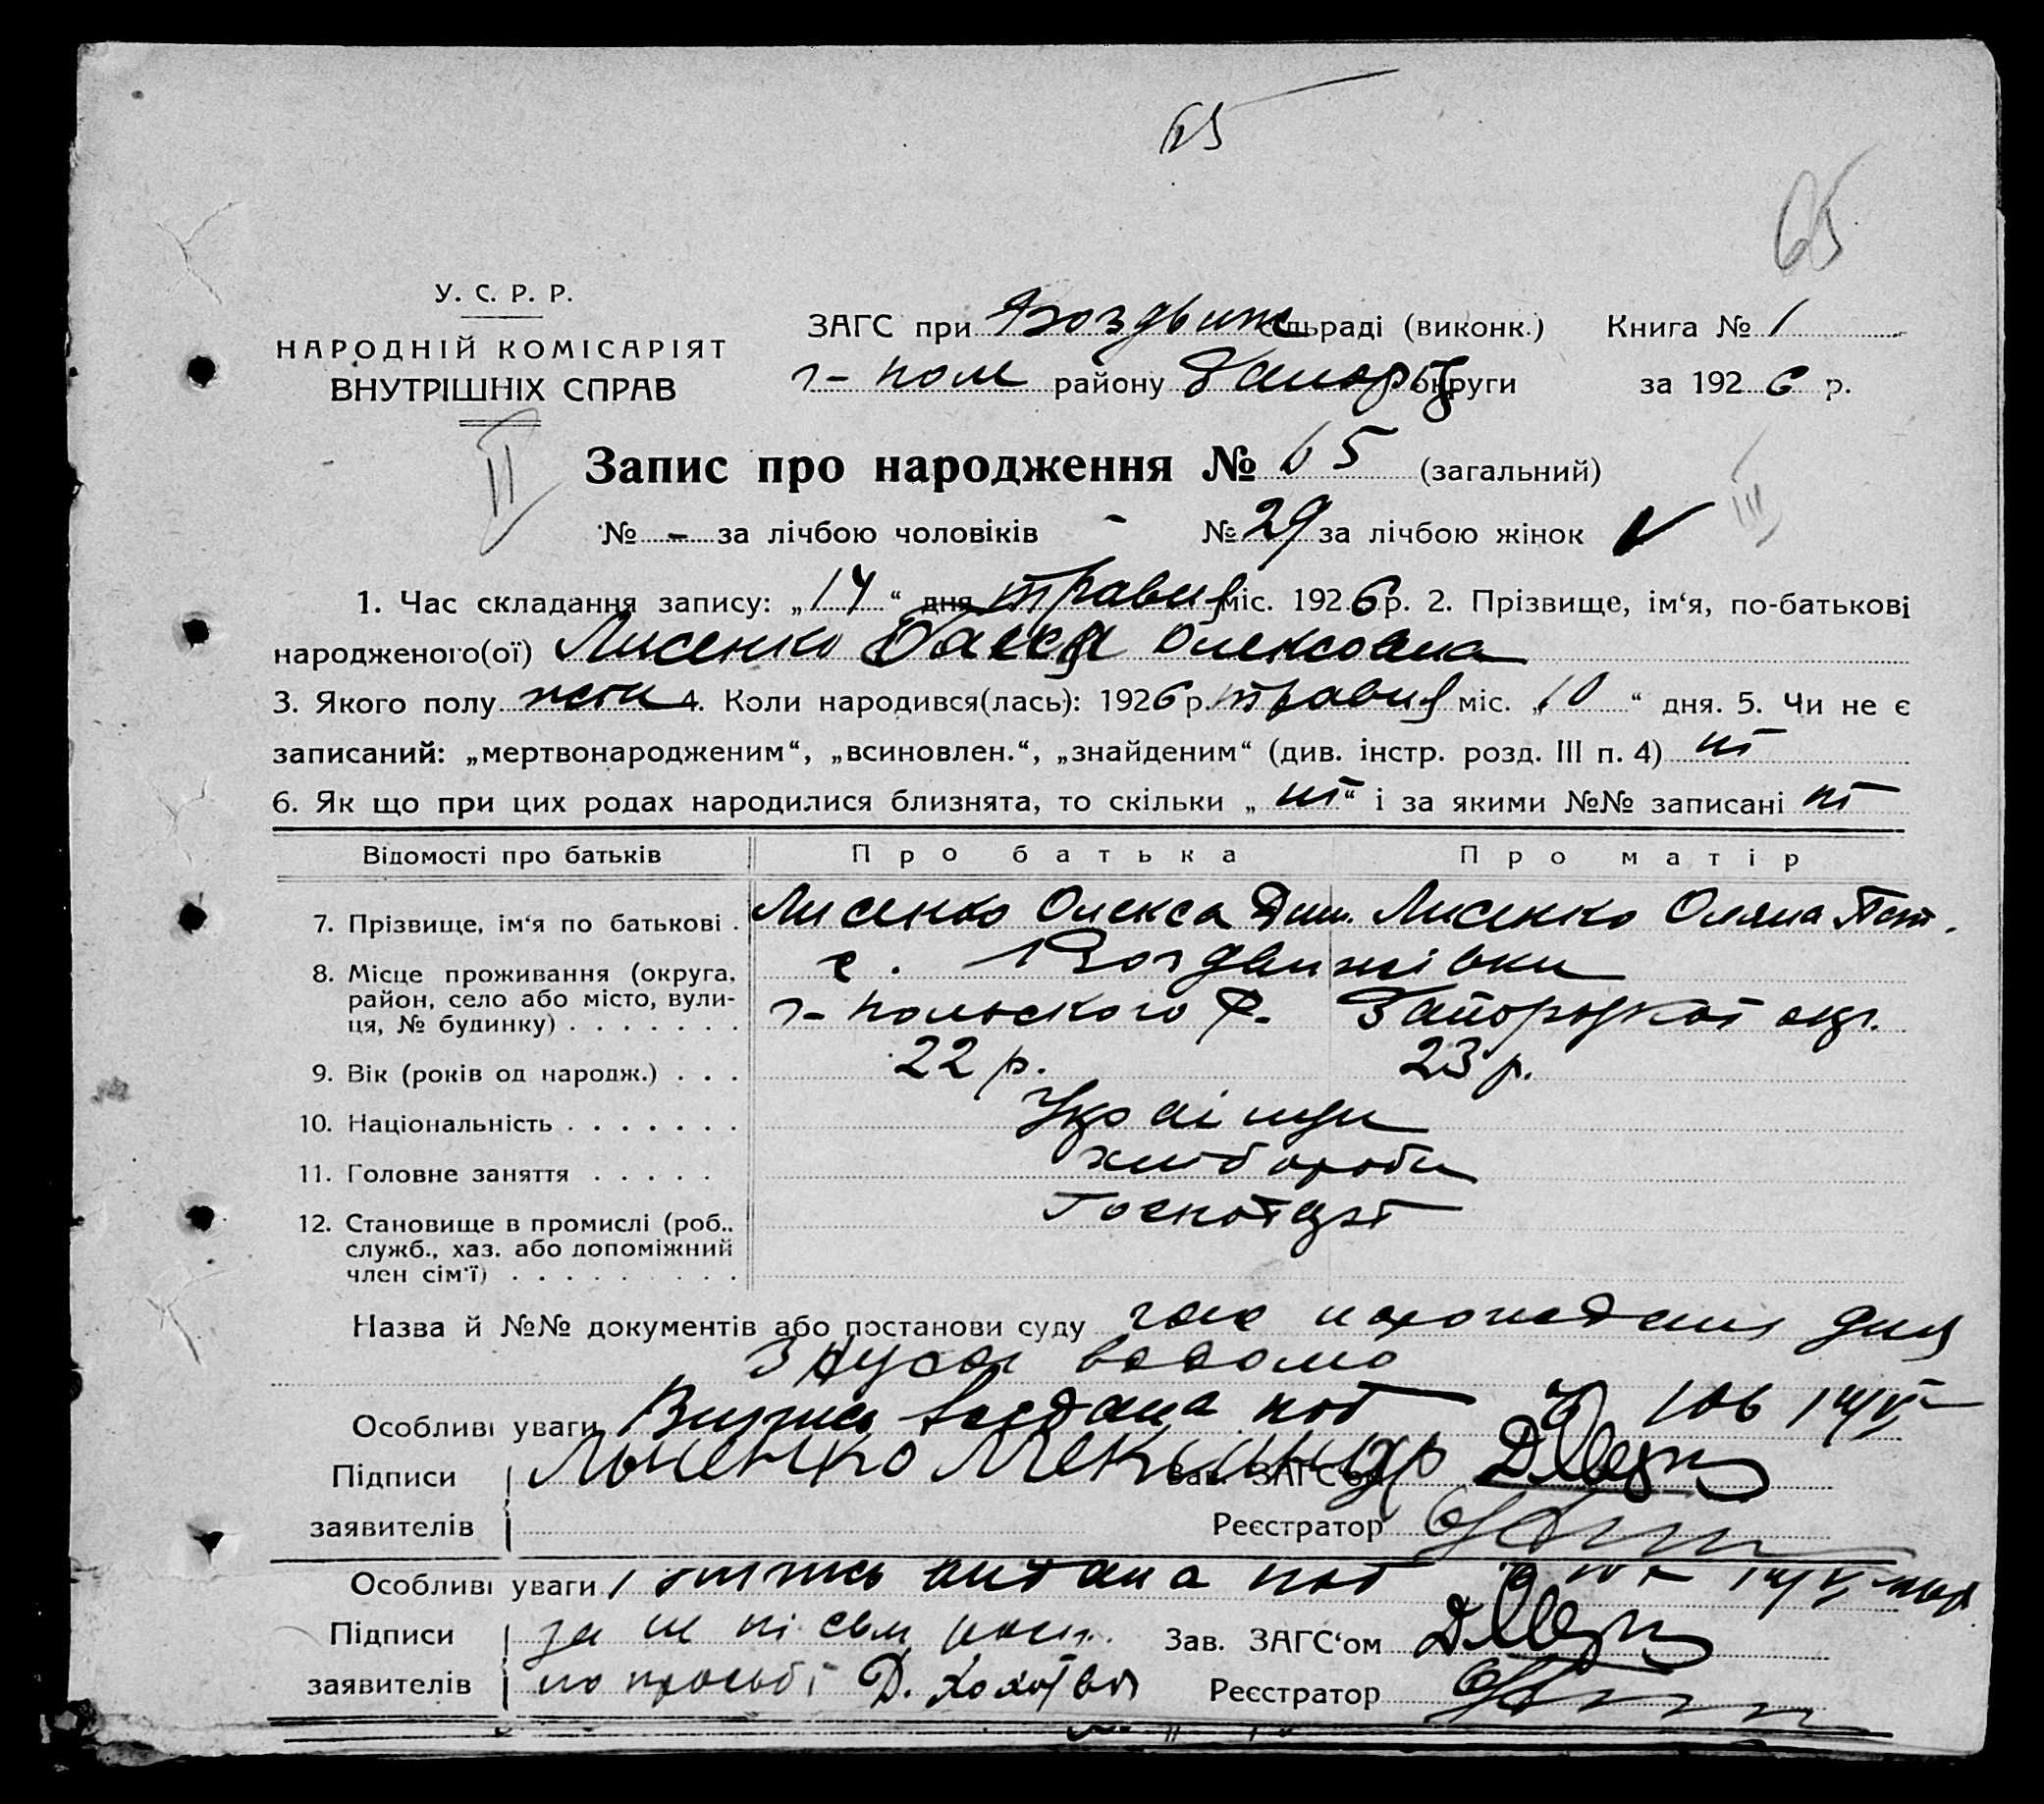 65
65
У. С. Р. Р.
НАРОДНІЙ КОМІСАРІЯТ
ВНУТРІШНІХ СПРАВ
ЗАГС при Воздвиж сільраді (виконк.) Книга № 1
г-пол району Запор округи за 1926 р.
II
Запис про народження № 65 (загальний)
№ - за лічбою чоловіків - № 29 за лічбою жінок V III
1. Час складання запису: „14“ дня травня міс. 1926 р. 2. Прізвище, ім‘я, по-батькові
народженого(ої) Лисенко Олексовна
3. Якого полу жін 4. Коли народився(лась): 1926 р. травня міс. „10“ дня. 5. Чи не є
записаний: „мертвонародженим“, „всиновлен.“, „знайденим“ (див. інстр. розд. III п. 4) ні
6. Як що при цих родах народилися близнята, то скільки „ні“ і за якими №№ записані ні
Відомості про батьків Про батька Про матір
7. Прізвище, ім‘я по батькові . Лисенко Олекса Дим. Лисенко Оляна Пет.
8. Місце проживання (округа, с. Воздвижівки
район, село або місто, вули- г-польского р. Запорізкої окр.
ця, № будинку) . . . . . . .
9. Вік (років од народж.) . . . 22 р. 23 р.
10. Національність . . . . . . . Українці
11. Головне заняття . . . . . хлібороби
12. Становище в промислі (роб.,
служб., хаз. або допоміжний
член сім‘ї) . . . . . . . . .
Назва й №№ документів або постанови суду дня
Особливі уваги Випись видана под № 106 14/V
Підписи Лисенко Зав. ЗАГС‘ом
заявителів Реєстратор
Особливі уваги видана под № 14/V
Підписи за Зав. ЗАГС‘ом
заявителів по просьбі Д. Реєстратор